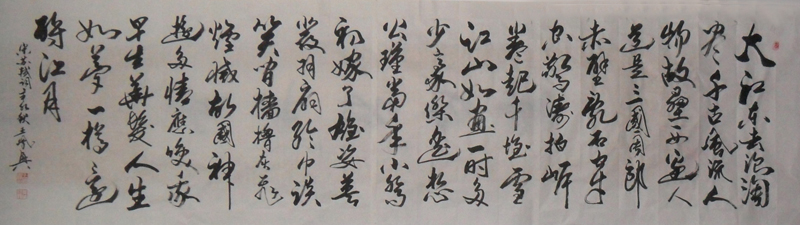 大江東去浪淘
盡千古風流人
物故壘西邊人
道是三國周郎
赤壁亂石穿
空驚濤拍岸
卷起千堆雪
江山如畫一時多
少豪傑遙想
公瑾當年小喬
初嫁了雄姿英
發羽扇綸巾談
笑間檣櫓灰飛
煙滅故國神
遊多情應笑我
早生華髮人生
如夢一樽還
酹江月
宋蘇軾詞